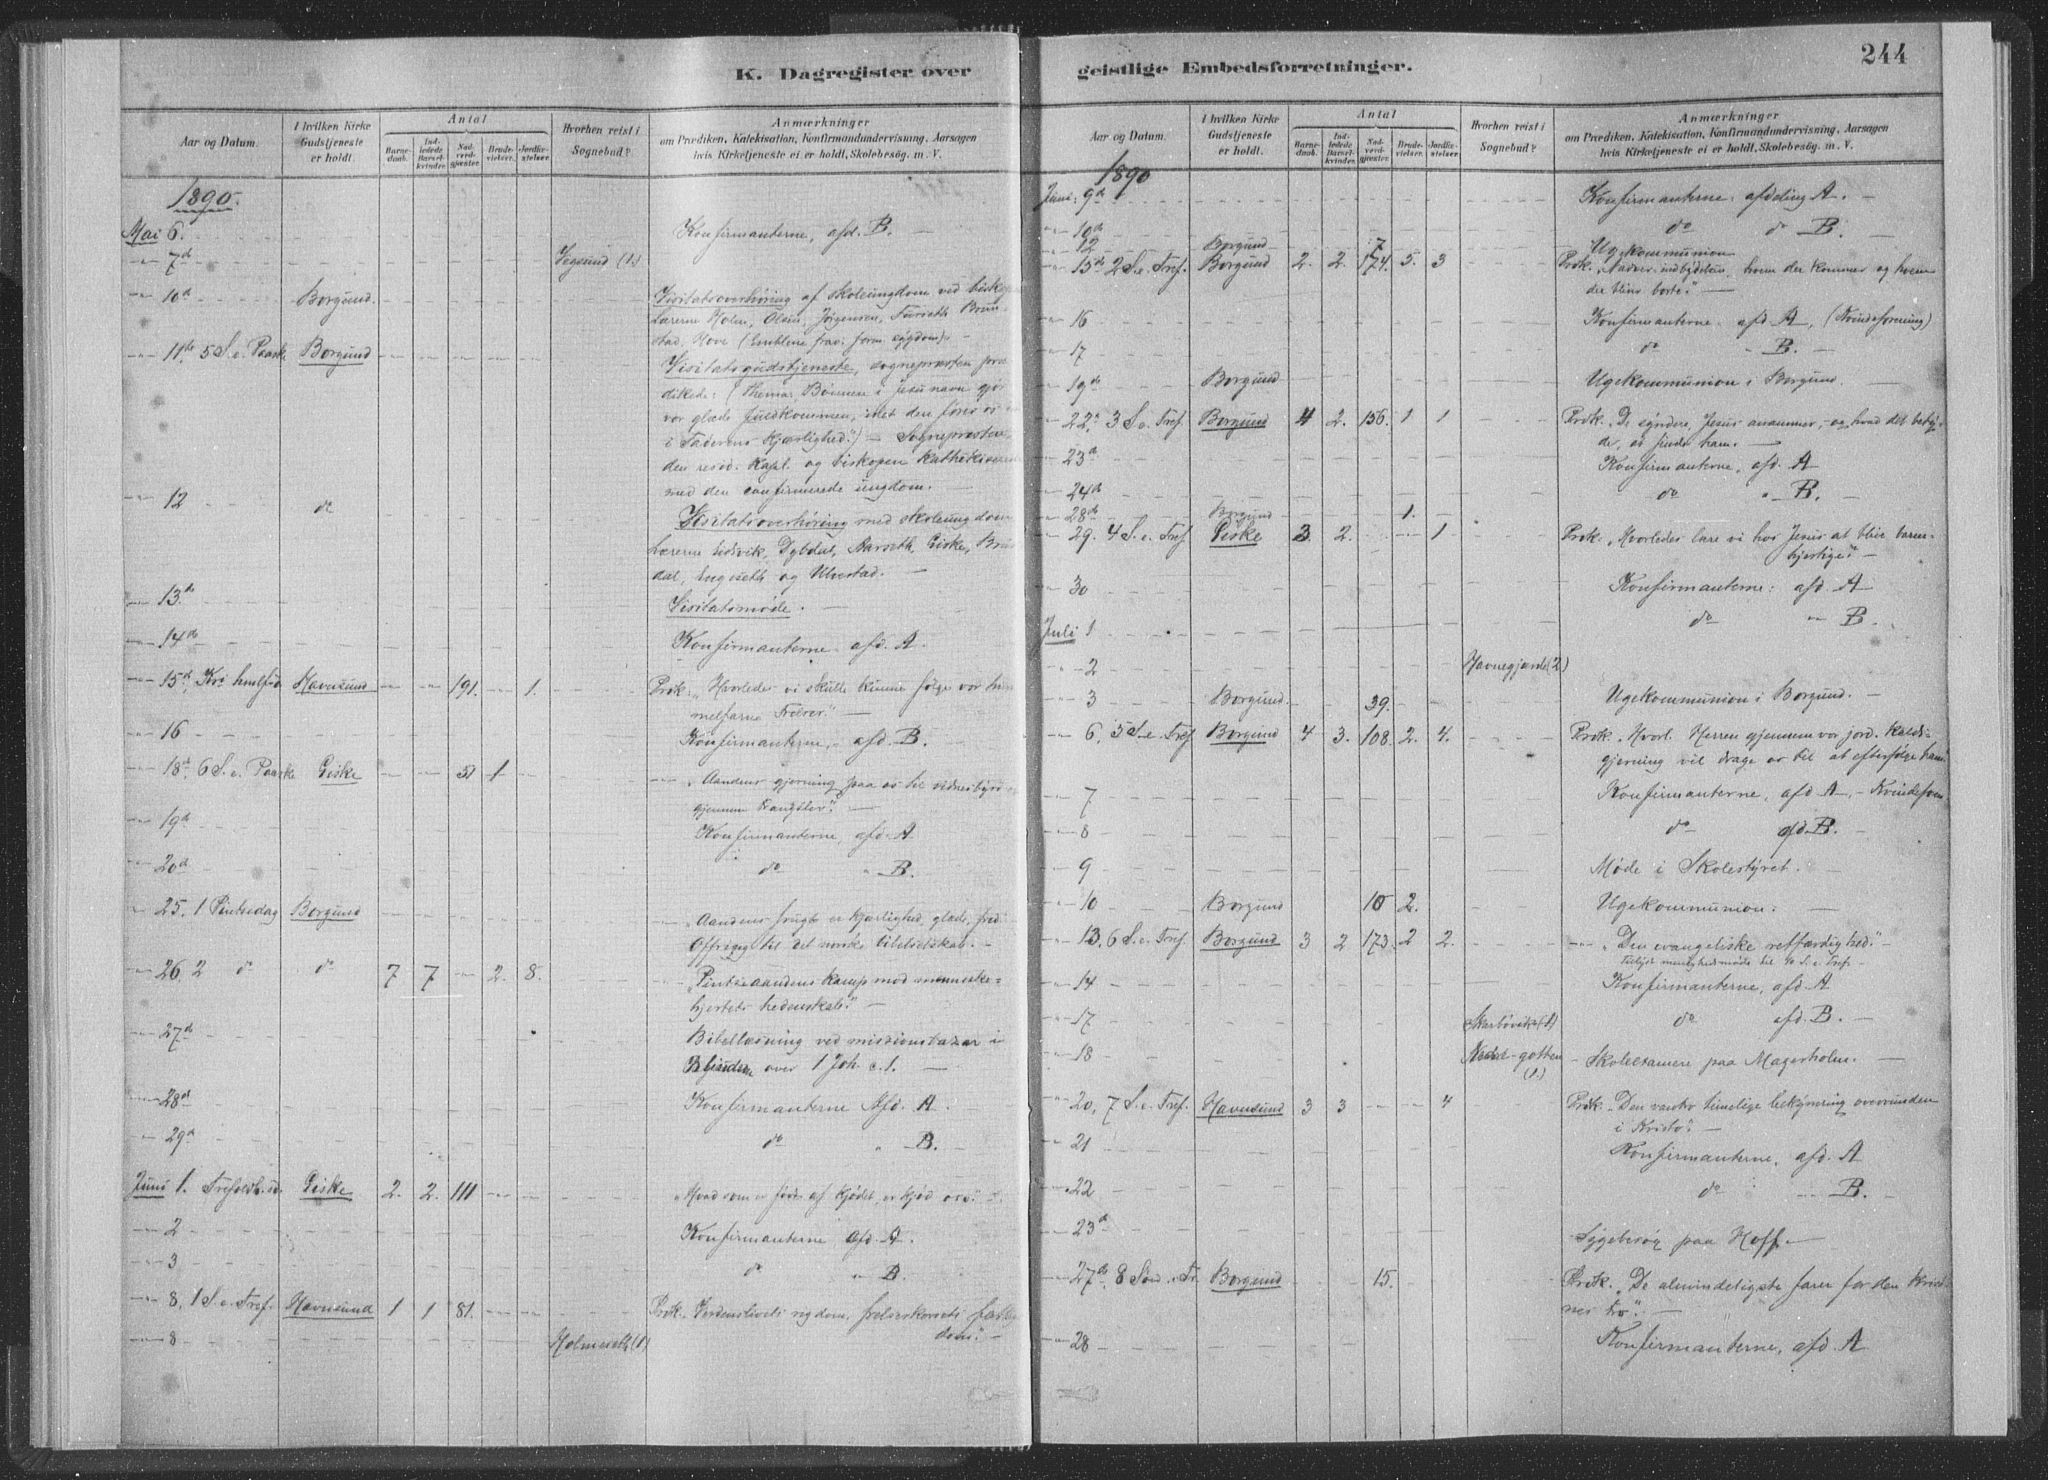 K. Dagregister over
Aar og Datum.
I hvilken Kirke Gudstjeneste er holdt.
Antal
Barnedaab.
Indledede Barselkvinder.
Nadverdgjester.
Brudevielser.
Jordfæstelser.
Hvorhen reist i Sognebud?
Anmærkninger
om Prædiken, Katekisation, Konfirmandundervisning, Aarsagen
hvis Kirketjeneste ei er holdt, Skolebesøg. m. V.
1890.
Mai 6. Konfirmanterne, afd. B. —
7d Vegsund (1.)
10d Borgund. Visitatsoverhøring af skoleungdom ved
Lærerne Holm, Olsen, Jørgensen, Furseth Brun-
stad. Hove
11te 5 S. e. Paaske Borgund Visitatsgudstjeneste, sognepræsten præ-
dikede: (Thema: Bønnen i Jesu navn gjør
vor glæde fuldkommen, idet den fører os
i Faderens Kjærlighed") — Sognepræsten,
den resid. Kapl. og biskopen kathekiserede
med den confirmerede ungdom. —
12 do Visitatsoverhøring med skoleungdom
Lærerne Eidsvik, Dybdal, Aarseth, Giske,
dal, Engeseth og Ulvestad. —
13de Visitatsmøde. —
14de Konfirmanterne afd. A.
15d, Kri himlfdg Havnsund 191. 1. Præk. „Hvorledes vi skulle kunne følge vor him
melfarne Frelser." —
16 Konfirmanterne, afd. B. —
18d, 6 S. e. Paaske Giske 51 1 „Aandens gjerning paa os til vidnesbyrd
gjennem Trængsler". —
19d Konfirmanterne, afd. A
20d do " B.
25. 1 Pintsedag Borgund „Aandens frugt er kjærlighed, glæde, fred
Offring til det norske bibelselskab. —
26. 2 do do 7 7 2. 8. „Pintseaandens kamp mod menneske-
hjertets hedenskab". —
27d Bibellæsning ved missionsbazar i
over 1 Joh. c. 1. —
28d Konfirmanterne Afd. A. —
29d do " B. —
Juni 1. Trefoldh. sø. Giske 2. 2. 111 „Hvad som er født af kjødet, er kjød osv." —
2 Konfirmanterne afd. A.
3 do " B.
8, 1 S. e. Tref. Havnsund 1 1 81. Præk. Verdenslivets rigdom, frelseskorsets fattig
dom". —
8 Holmeseth (1)
geistlige Embedsforretninger.
244
Aar og Datum.
I hvilken Kirke Gudstjeneste er holdt.
Antal
Barnedaab.
Indledede Barselkvinder.
Nadverdgjester.
Brudevielser.
Jordfæstelser.
Hvorhen reist i Sognebud?
Anmærkninger
om Prædiken, Katekisation, Konfirmandundervisning, Aarsagen
hvis Kirketjeneste ei er holdt, Skolebesøg. m. V.
1890
Juni 9d Konfirmanterne: afdeling A. —
10d do d B. —
12 Borgund 7 Ugekommunion
15d 2 S. e. Tref. Borgund 2. 2. 174. 5. 3 Præk. „Nadver-indbydelsen, hvem der kommer og hvem
der blive borte." —
16 Konfirmanterne afd A, (Kvindeforening)
17 do B. —
19d Borgund Ugekommunion i Borgund. —
22d 3 S. e. Tref. Borgund 4 2. 156. 1 1 Præk. „De syndere, Jesus anammer, og hvad det betyder
at finde ham. —
23d Konfirmanterne, afd. A
24d do " B. —
28d Borgund 1.
29. 4 S. e. Tref Giske 3. 2. 1 Præk. „Hvorledes lære vi hos Jesus at blive barm-
hjertige?" —
30 Konfirmanterne: afd. A
Juli 1 do " B. —
2 Havnegjærde (2)
3 Borgund. 39. Ugekommunion i Borgund. —
6, 5 S. e. Tref Borgund 4 3. 108. 2. 4. Præk. „Hvorl. Herren gjennem vor jord. kalds-
gjerning vil drage os til at efterfølge ham"
7 Konfirmanterne, afd A, - Kvindefor
8 do afd. B. —
9 Møde i Skolestyret. —
10 Borgund 10 2. Ugekommunion. —
13. 6 S. e. Tref. Borgund 3 2 173. 2 2. „Den evangeliske retfærdighed". —
menighedsmøde til 10 S. e. Tref. —
14 Konfirmanterne, afd. A
17 Skarbøvik (1) do afd. B. —
18 Nedre-gotten (1.) Skoleexamen paa Magerholm. —
20, 7 S. e. Tref. Havnsund 3 3 4 Præk. „Den vantro timelige bekymring overvunden
i Kristo". —
21 Konfirmanterne, afd. A
22 do B. —
23d Sygebesøg paa Hoff. —
27de 8 Sønd. e. Tr. Borgund 15. Præk. „De almindeligste farer for den krist-
nes tro". —
28 Konfirmanterne, afd. A.